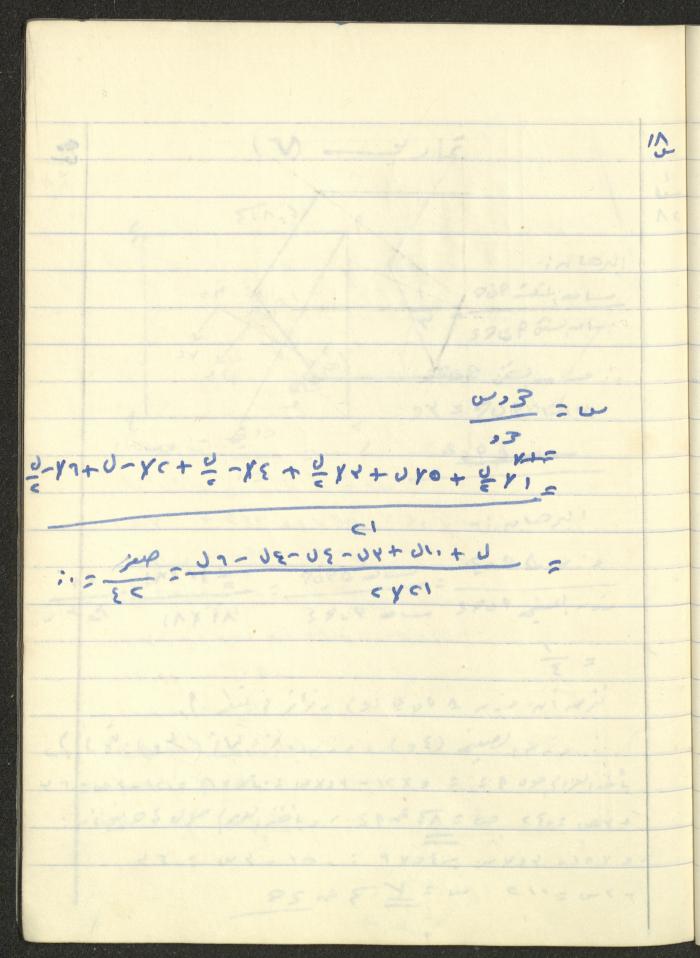 ١٨
س
س = مجـ و س / مجـ و
= ١ × ل/٢ + ٥ × ل + ٣ × ل/٢ + ٤ × - ل/٢ + ٢ × - ل + ٦ × - ل/٢
٢١
= ل + ١٠ل + ٣ل - ٤ل - ٤ل - ٦ل / ٢١ × ٢ = صفر / ٤٢ = ٠